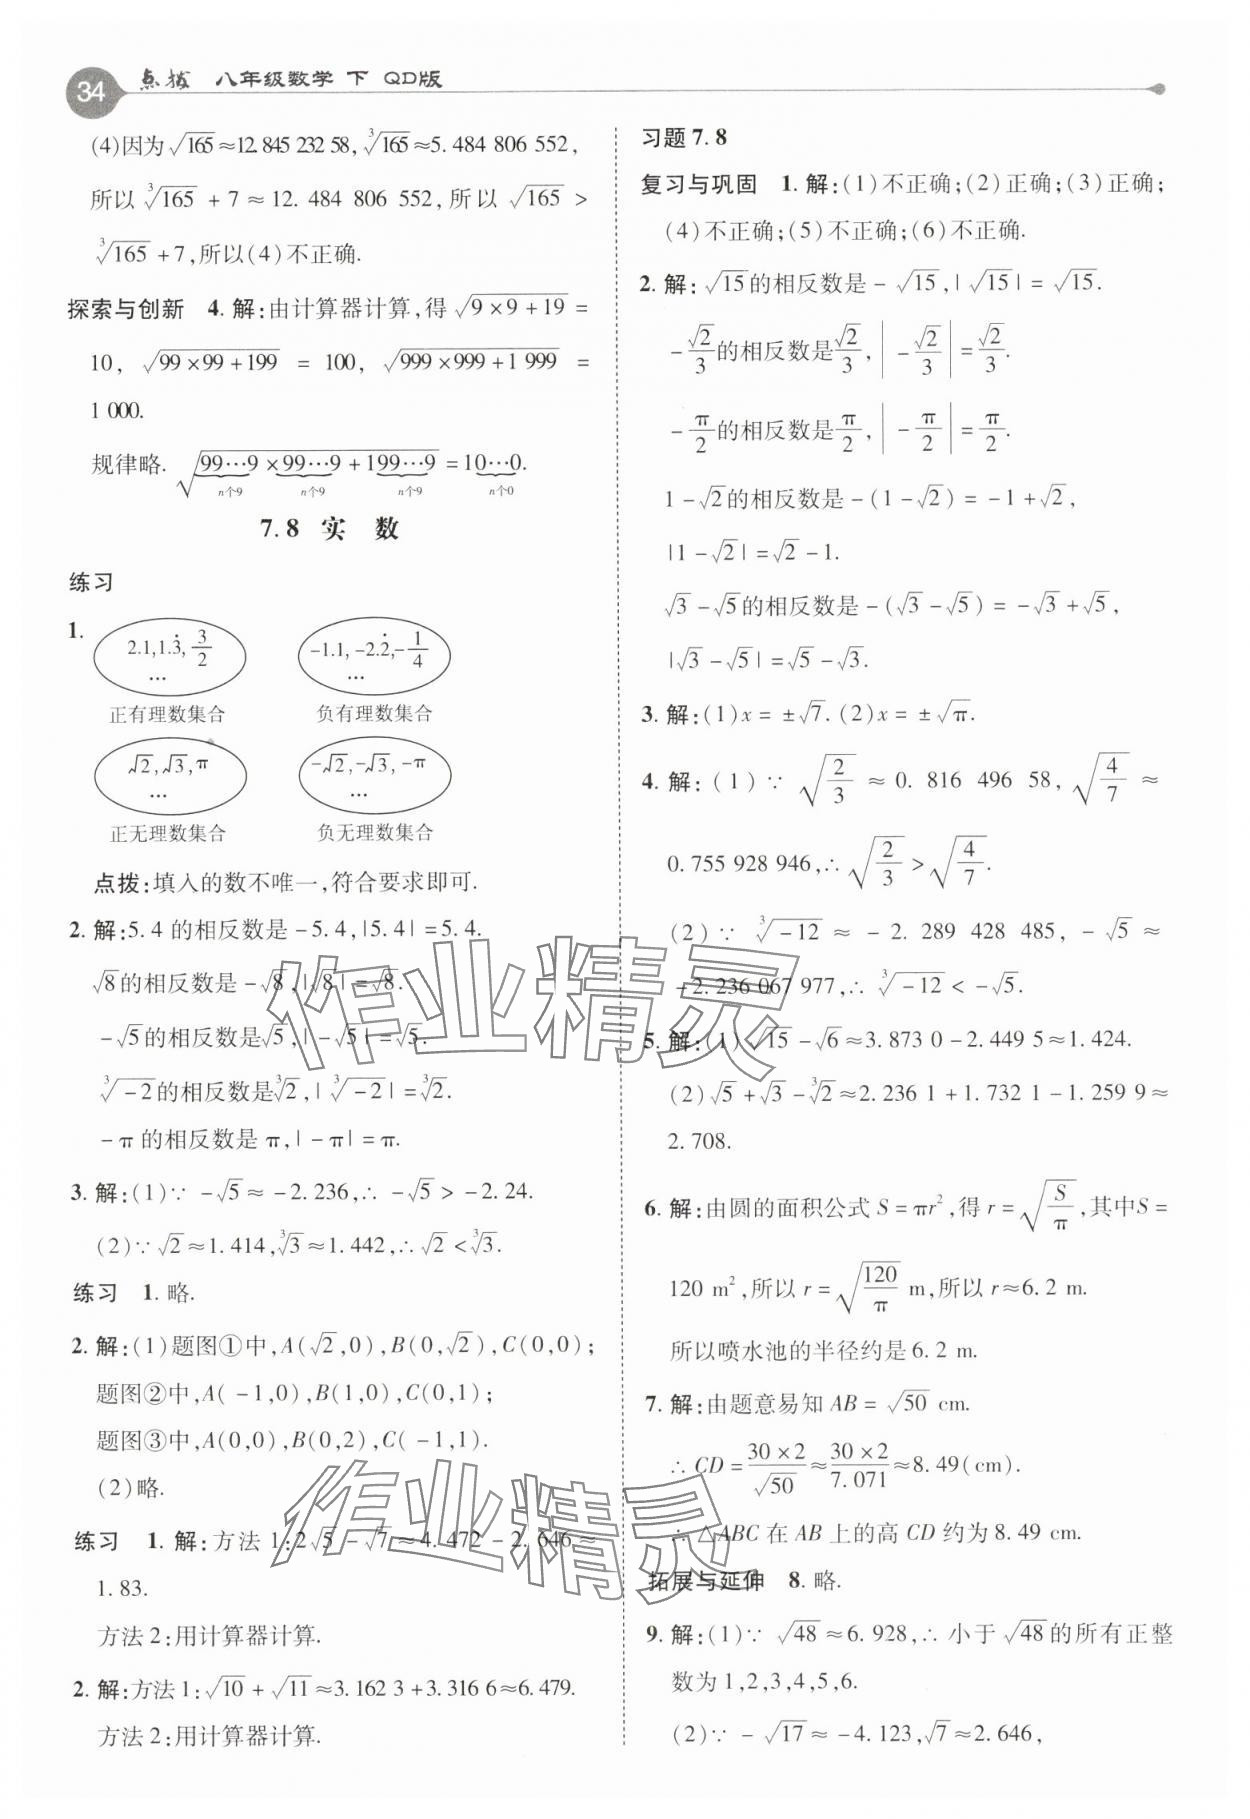 34 点拨 八年级数学 下 QD版
(4)因为√165≈12.845 232 58,∛165≈5.484 806 552,
所以∛165+7≈12.484 806 552,所以√165>
∛165+7,所以(4)不正确.
探索与创新 4.解:由计算器计算,得√(9×9+19)=
10,√(99×99+199)=100,√(999×999+1 999)=
1 000.
规律略.√(99…9×99…9+199…9)=10…0.
n个9 n个9 n个9 n个0
7.8 实 数
练习
1.
2.1,1.3̇,3/2 … -1.1,-2.2̇,-1/4 …
正有理数集合 负有理数集合
√2,√3,π … -√2,-√3,-π …
正无理数集合 负无理数集合
点拨:填入的数不唯一,符合要求即可.
2.解:5.4的相反数是-5.4,|5.4|=5.4.
√8的相反数是-√8,|√8|=√8.
-√5的相反数是√5,|-√5|=√5.
∛-2的相反数是∛2,|∛-2|=∛2.
-π的相反数是π,|-π|=π.
3.解:(1)∵-√5≈-2.236,∴-√5>-2.24.
(2)∵√2≈1.414,∛3≈1.442,∴√2<∛3.
练习 1.略.
2.解:(1)题图①中,A(√2,0),B(0,√2),C(0,0);
题图②中,A(-1,0),B(1,0),C(0,1);
题图③中,A(0,0),B(0,2),C(-1,1).
(2)略.
练习 1.解:方法1:2√5-√7≈4.472-2.646≈
1.83.
方法2:用计算器计算.
2.解:方法1:√10+√11≈3.162 3+3.316 6≈6.479.
方法2:用计算器计算.
习题7.8
复习与巩固 1.解:(1)不正确;(2)正确;(3)正确;
(4)不正确;(5)不正确;(6)不正确.
2.解:√15的相反数是-√15,|√15|=√15.
-√2/3的相反数是√2/3,|-√2/3|=√2/3.
-π/2的相反数是π/2,|-π/2|=π/2.
1-√2的相反数是-(1-√2)=-1+√2,
|1-√2|=√2-1.
√3-√5的相反数是-(√3-√5)=-√3+√5,
|√3-√5|=√5-√3.
3.解:(1)x=±√7.(2)x=±√π.
4.解:(1)∵√(2/3)≈0.816 496 58,√(4/7)≈
0.755 928 946,∴√(2/3)>√(4/7).
(2)∵∛-12≈-2.289 428 485,-√5≈
-2.236 067 977,∴∛-12<-√5.
5.解:(1)√15-√6≈3.873 0-2.449 5≈1.424.
(2)√5+√3-∛2≈2.236 1+1.732 1-1.259 9≈
2.708.
6.解:由圆的面积公式S=πr²,得r=√(S/π),其中S=
120 m²,所以r=√(120/π) m,所以r≈6.2 m.
所以喷水池的半径约是6.2 m.
7.解:由题意易知AB=√50 cm.
∴CD=(30×2)/√50≈(30×2)/7.071≈8.49(cm).
∴△ABC在AB上的高CD约为8.49 cm.
拓展与延伸 8.略.
9.解:(1)∵√48≈6.928,∴小于√48的所有正整
数为1,2,3,4,5,6.
(2)∵-√17≈-4.123,√7≈2.646,
作业精灵
作业精灵